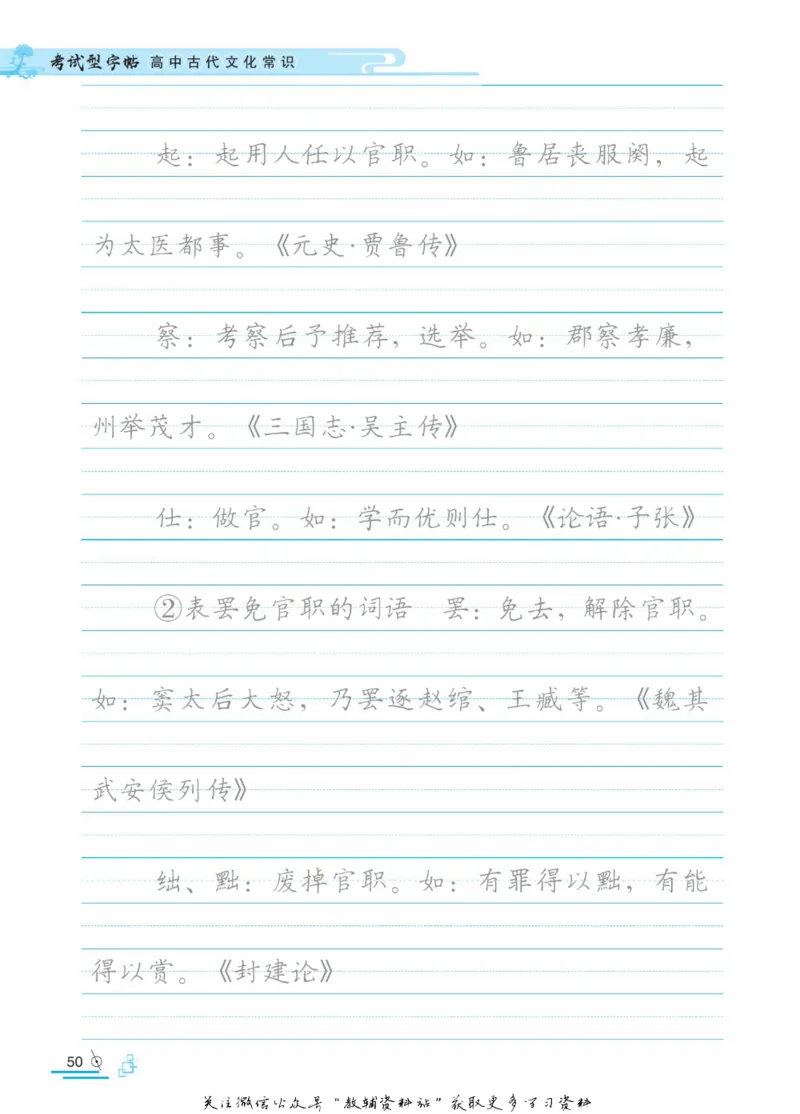 考试型字帖 高中古代文化常识
起：起用人任以官职。如：鲁居丧服阕，起
为太医都事。《元史·贾鲁传》
察：考察后予推荐，选举。如：郡察孝廉，
州举茂才。《三国志·吴主传》
仕：做官。如：学而优则仕。《论语·子张》
②表罢免官职的词语　罢：免去，解除官职。
如：窦太后大怒，乃罢逐赵绾、王臧等。《魏其
武安侯列传》
绌、黜：废掉官职。如：有罪得以黜，有能
得以赏。《封建论》
50
关注微信公众号“教辅资料站”获取更多学习资料